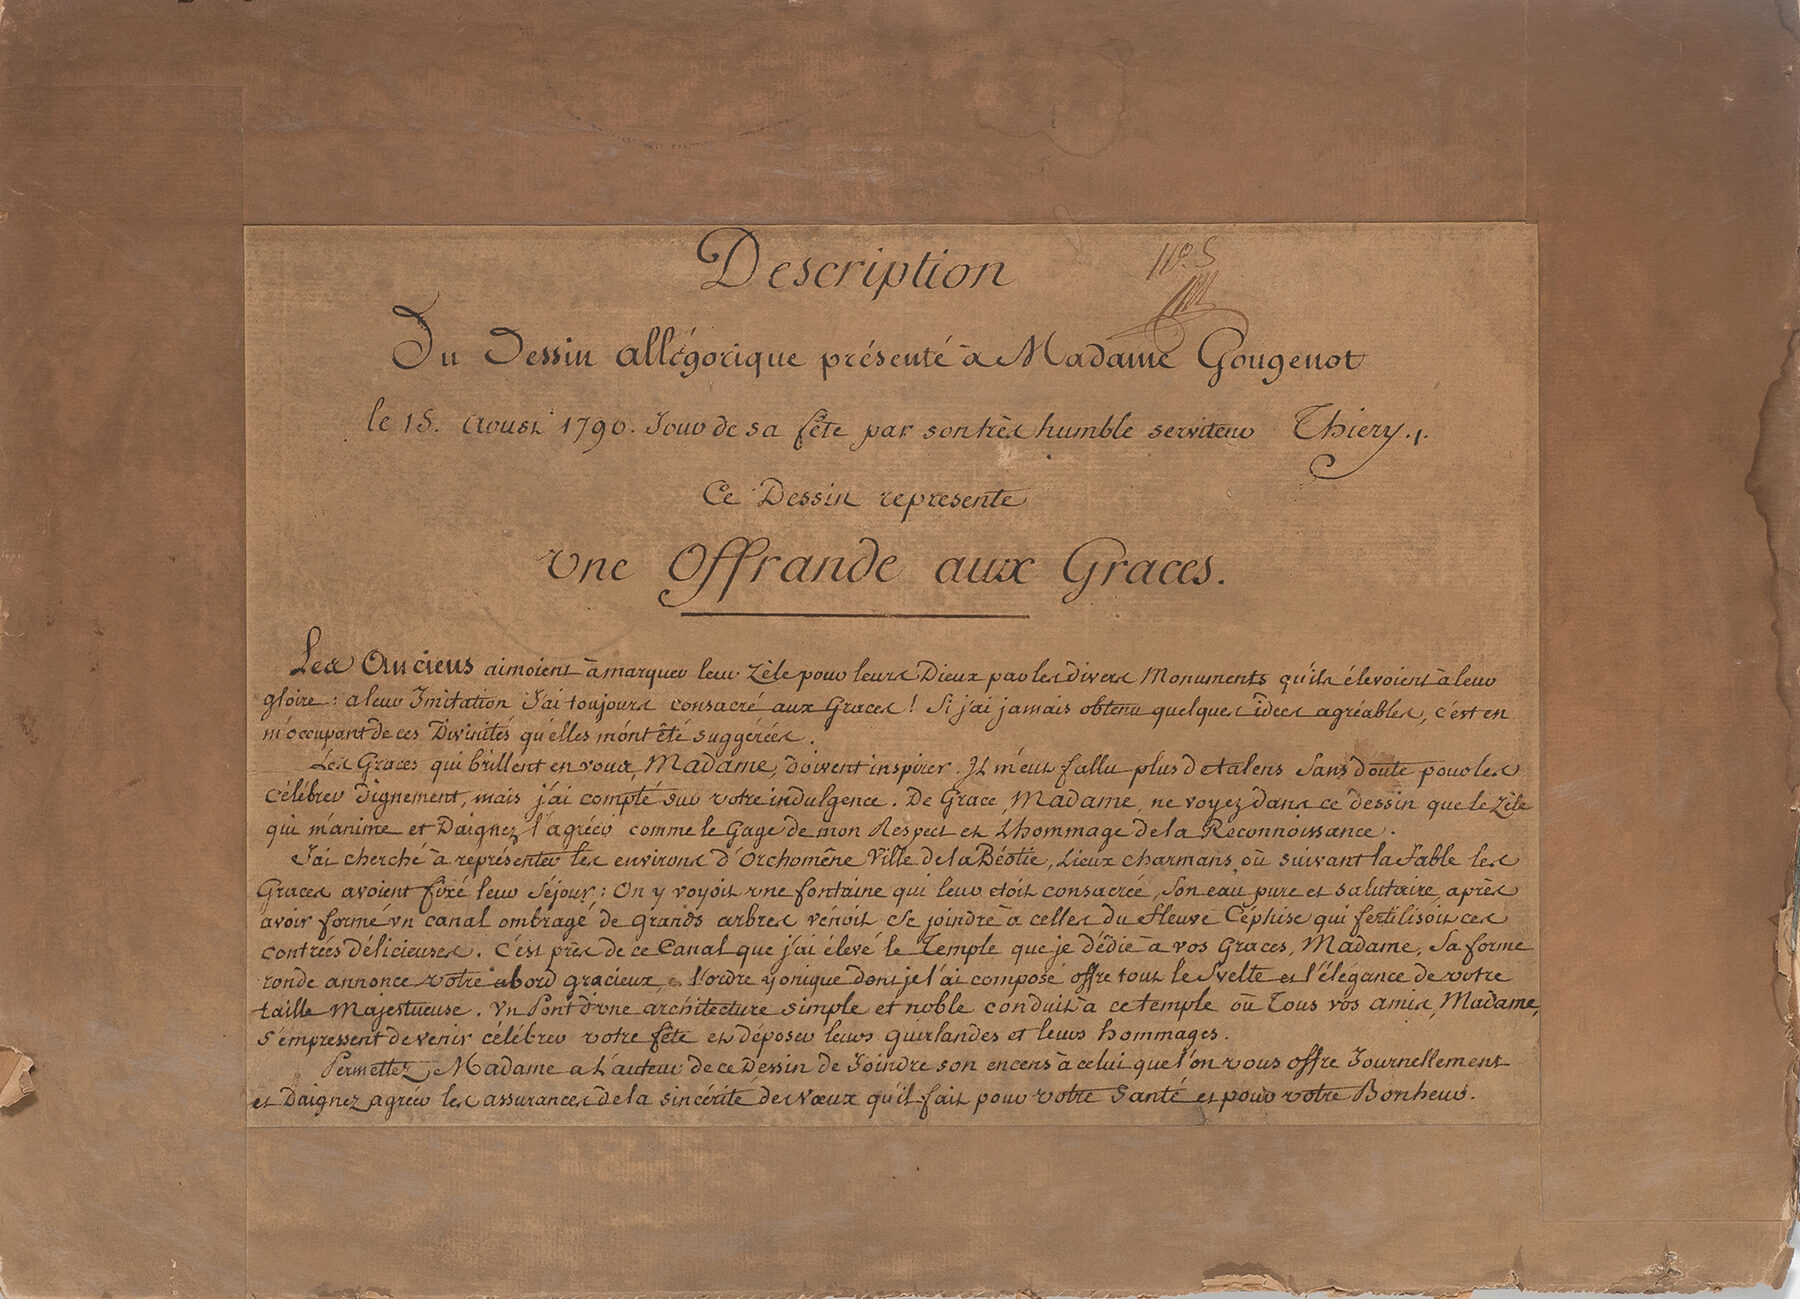 Description
N.° 5
Du Dessin allégorique présenté à Madame Gougenot
le 15. Aoust 1790. Jour de sa fête par son très humble serviteur Thiery.
Ce Dessin represente
Une Offrande aux Graces.
Les Anciens aimoient à marquer leur Zèle pour leurs Dieux par les divers Monuments qu'ils élevoient à leur
gloire : a leur Imitation J'ai toujours consacré aux Graces ! Si j'ai jamais obtenu quelques idées agréables, c'est en
m'occupant de ces Divinités qu'elles m'ont été suggérées.
Les Graces qui brillent en vous, Madame, doivent inspirer. Il m'eut fallu plus de talens Sans doute pour les
Célébrer Dignement, mais j'ai compté sur votre indulgence. De Grace, Madame, ne voyez dans ce dessin que le Zèle
qui m'anime et Daignez l'agréer comme le Gage de mon Respect et L'hommage de la Reconnoissance.
J'ai cherché à représenter les environs d'Orchomêne Ville de la Béotie, Lieux charmans où suivant la Fable les
Graces avoient fixé leur Séjour : On y voyoit une fontaine qui leur étoit consacrée, Son eau pure et salutaire, après
avoir formé un canal ombragé de grands arbres venoit se joindre à celles du fleuve Céphise qui fertilisoit ces
contrées délicieuses. C'est près de ce Canal que j'ai élevé le Temple que je dédie à vos Graces, Madame, Sa forme
ronde annonce votre abord gracieux, l'ordre yonique dont je l'ai composé offre tout le Svelte et l'élégance de votre
taille Majestueuse. Un Pont d'une architecture simple et noble conduit à ce temple où Tous vos amis, Madame,
S'empressent de venir célébrer votre fête et déposer leurs guirlandes et leurs hommages.
Permettez, Madame a L'auteur de ce Dessin de Joindre son encens à celui que l'on vous offre Journellement
et Daignez agréer les assurances de la sincérité des vœux qu'il fait pour votre Santé et pour votre Bonheur.